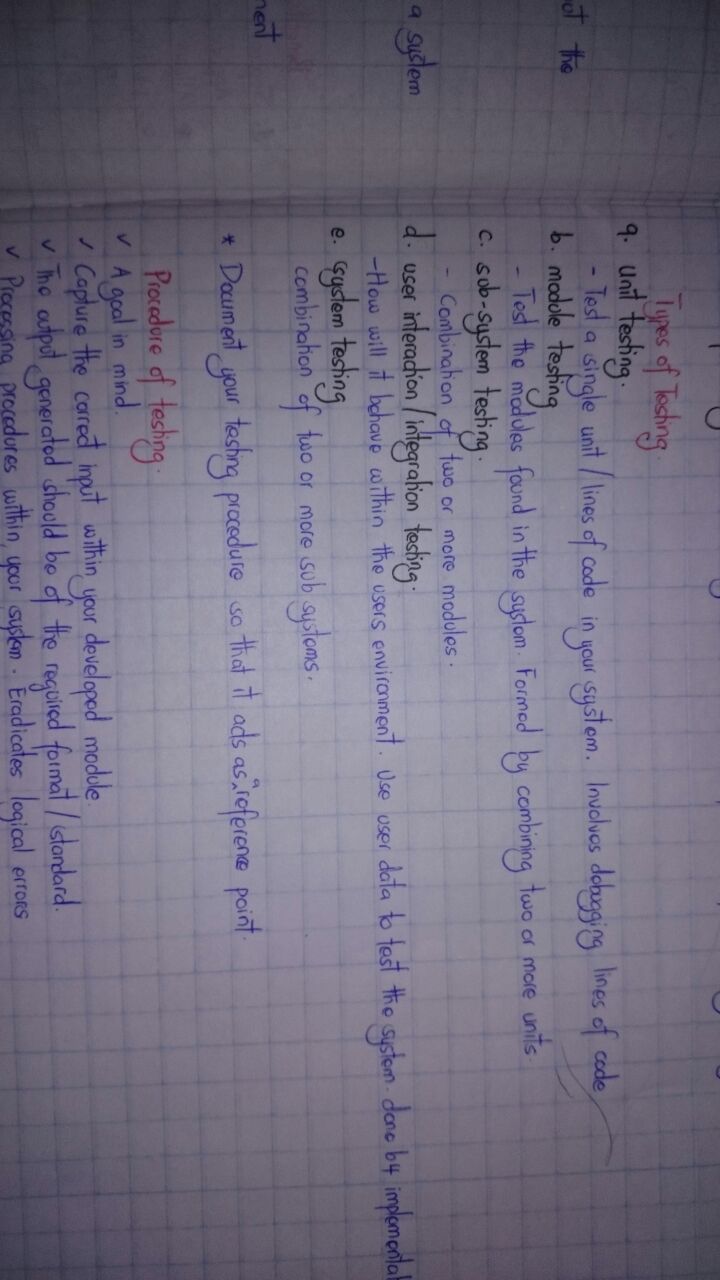 ot the
a system
ment
Types of Testing.
a. unit testing.
- Test a single unit / lines of code in your system. Involves debugging lines of code
b. module testing
- Test the modules found in the system. Formed by combining two or more units.
c. sub-system testing.
- Combination of two or more modules.
d. user interaction / integration testing.
- How will it behave within the users environment. Use user data to test the system. done b4 implementa
e. system testing
combination of two or more sub systems.
* Document your testing procedure so that it acts as a reference point.
Procedure of testing.
✓ A goal in mind.
✓ Capture the correct input within your developed module.
✓ The output generated should be of the required format / standard.
✓ Processing procedures within your system. Eradicates logical errors